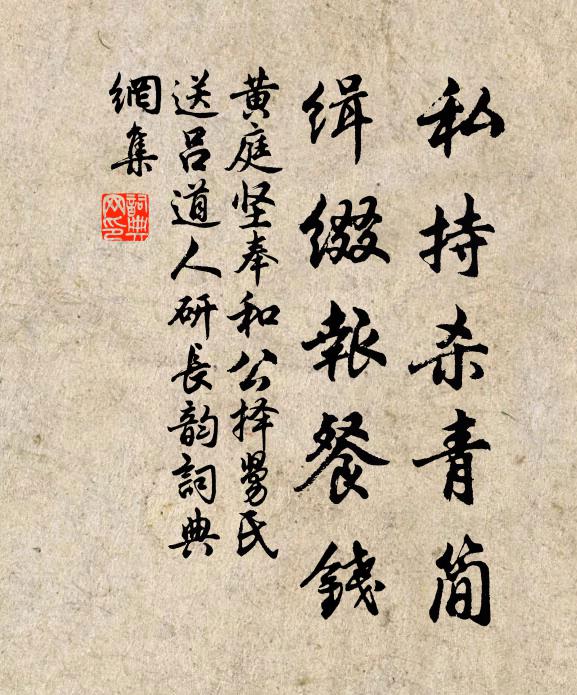 私持杀青简
缉缀報餐錢
黄庭坚奉和公择舅氏
送吕道人研长韵詞典
網集
詞典網印